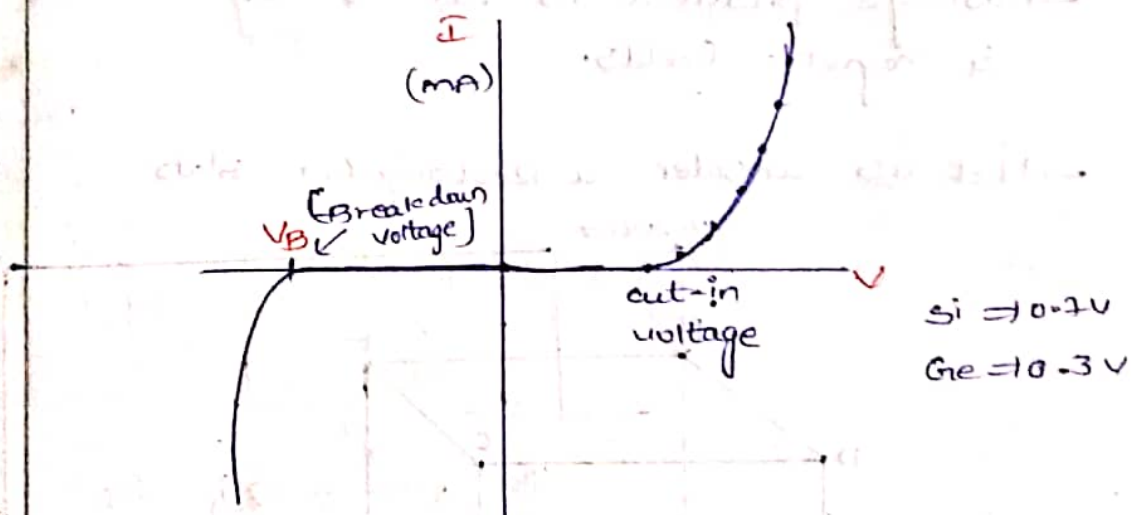 I
(mA)
[Breakdown
voltage]
VB
V
cut-in
voltage
Si ⇒ 0.7V
Ge ⇒ 0.3V